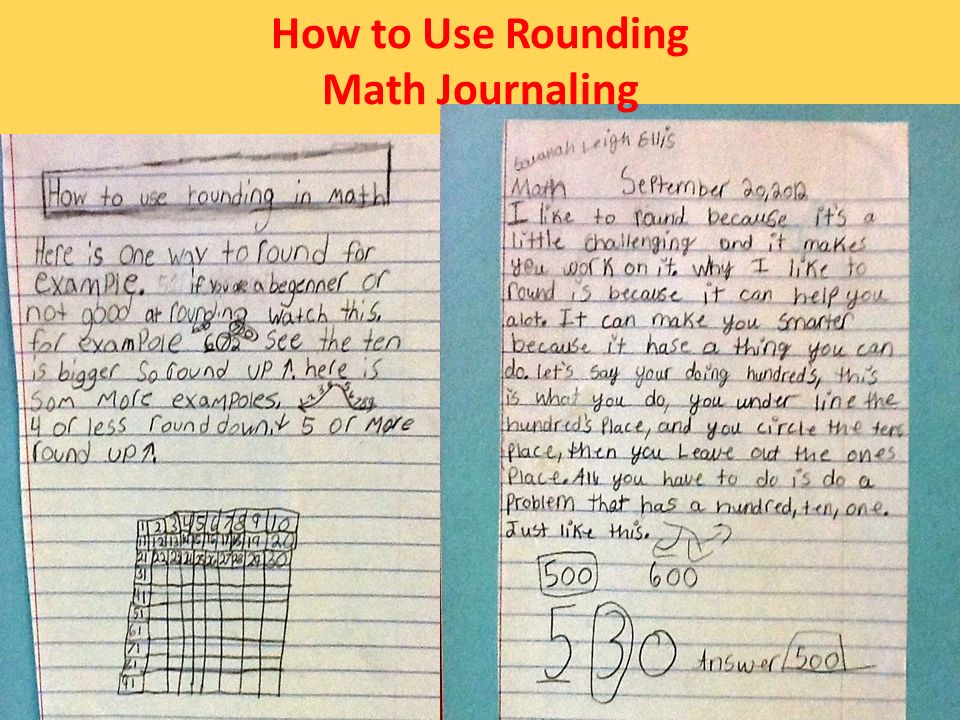 How to Use Rounding
Math Journaling
How to use rounding in math
Here is one way to round for
example. if you are a begenner or
not good at rounding watch this.
for exampole 602 see the ten
is bigger so round up ↑. here is
som more exampoles.
4 or less round down.↓ 5 or more
round up ↑.
1 2 3 4 5 6 7 8 9 10
11 12 13 14 15 16 17 18 19 20
21 22 23 24 25 26 27 28 29 30
31
41
51
61
71
81
91
Savanah Leigh Ellis
Math September 20, 2012
I like to round because it's a
little challenging and it makes
you work on it. why I like to
round is because it can help you
alot. It can make you smarter
because it hase a thing you can
do. let's say your doing hundred's, this
is what you do, you under line the
hundred's place, and you circle the tens
place, then you leave out the ones
place. All you have to do is do a
problem that has a hundred, ten, one.
Just like this.
500 600
530 Answer 500